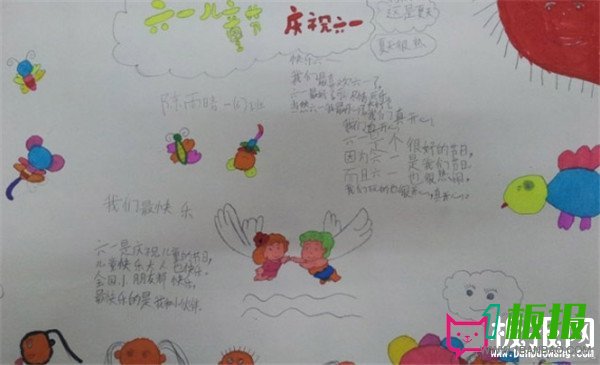 六一儿童节
庆祝六一
这是夏天
夏天很热
快乐六一
我们最喜欢六一了。
我们真开心!
六一一个很好的节日,
因为六一是我们节日。
而且六一也很热闹。
陈雨晴 一(1)班
我们最快乐
六一是庆祝儿童的节日,
儿童快乐大人也快乐。
全国小朋友都快乐。
最快乐的是我和小伙伴.
板报网
www.banbaowang.com